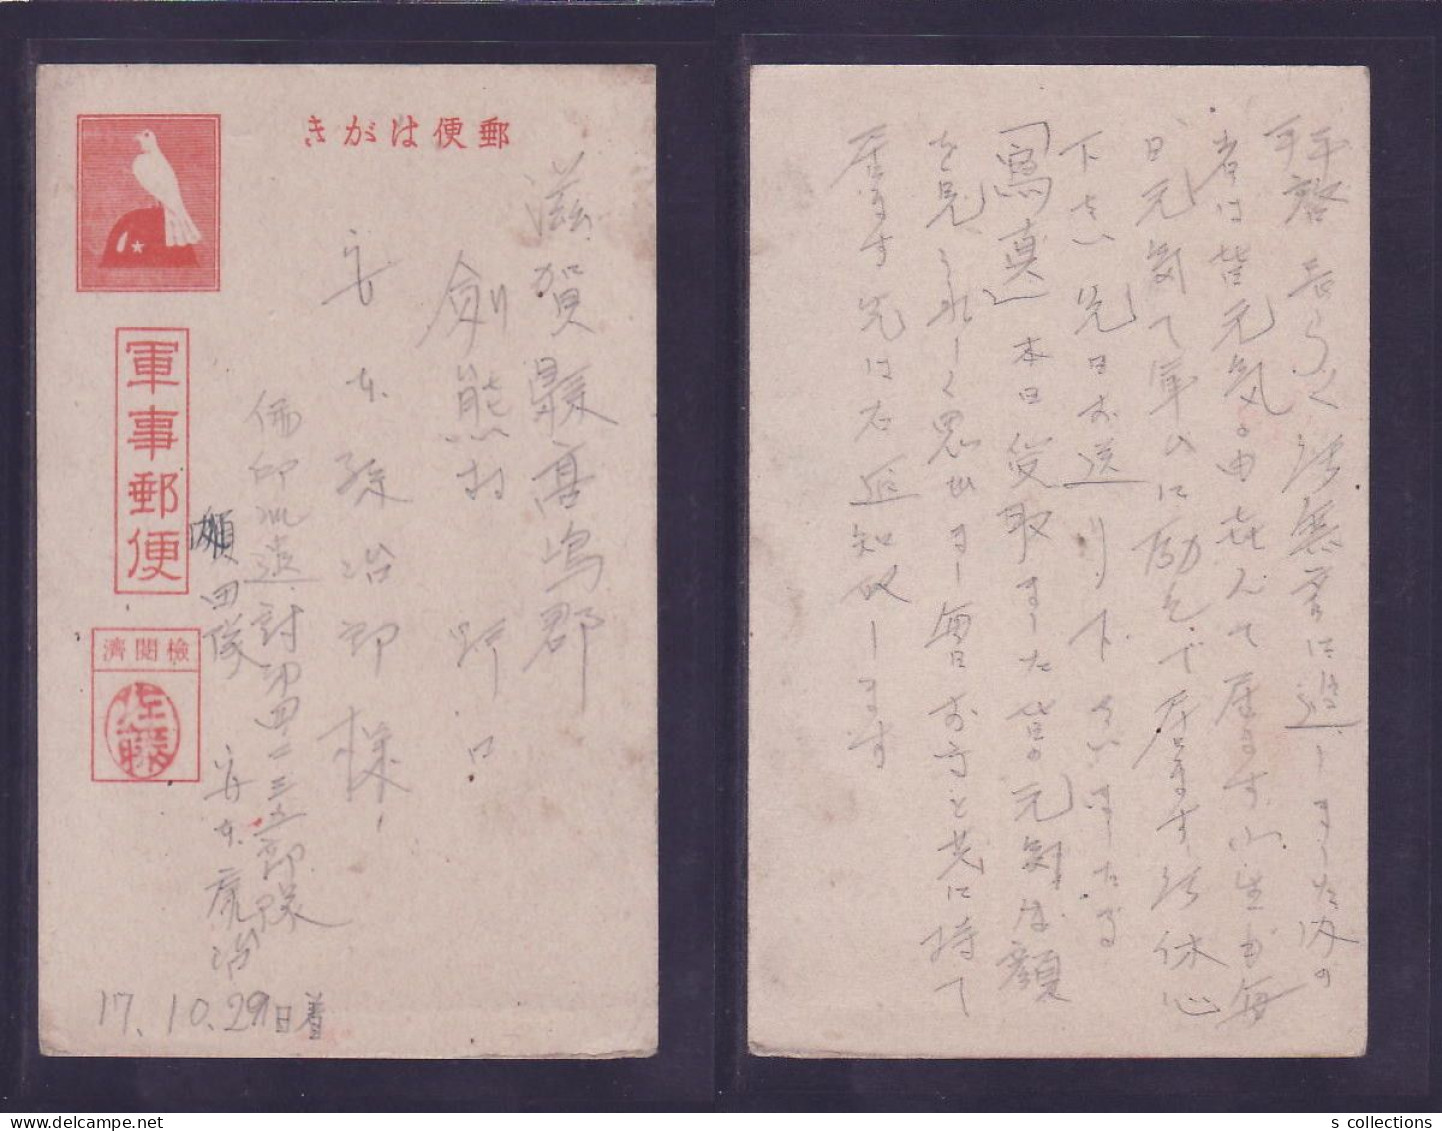 郵便はがき
滋賀縣高島郡
剣熊村 野口
安本孫治郎様
軍事郵便
検閲濟
佐藤
佛印派遣討第四二三五部隊
瀬田隊
17.10.29日着
拝啓 長らく御無音に過しました内の
者は皆元気の由喜んで居ます小生も毎
日元気で軍ムに励んで居ます御休心
下さい先日お送り下さいました
「寫真」本日受取ました皆の元気な顔
を見うれしく思出し毎日お守と共に持て
居ます先は右迄知らせします
s collections